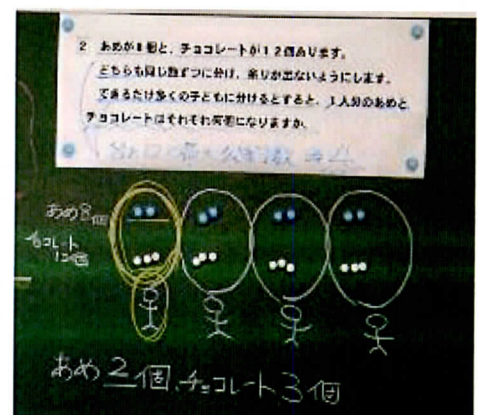 2 あめが8個と、チョコレートが12個あります。
どちらも同じ数ずつに分け、余りが出ないようにします。
できるだけ多くの子どもに分けるとすると、1人分のあめと
チョコレートはそれぞれ何個になりますか。
8と12の最大公約数 4
あめ8個
チョコレート
12個
あめ2個、チョコレート3個